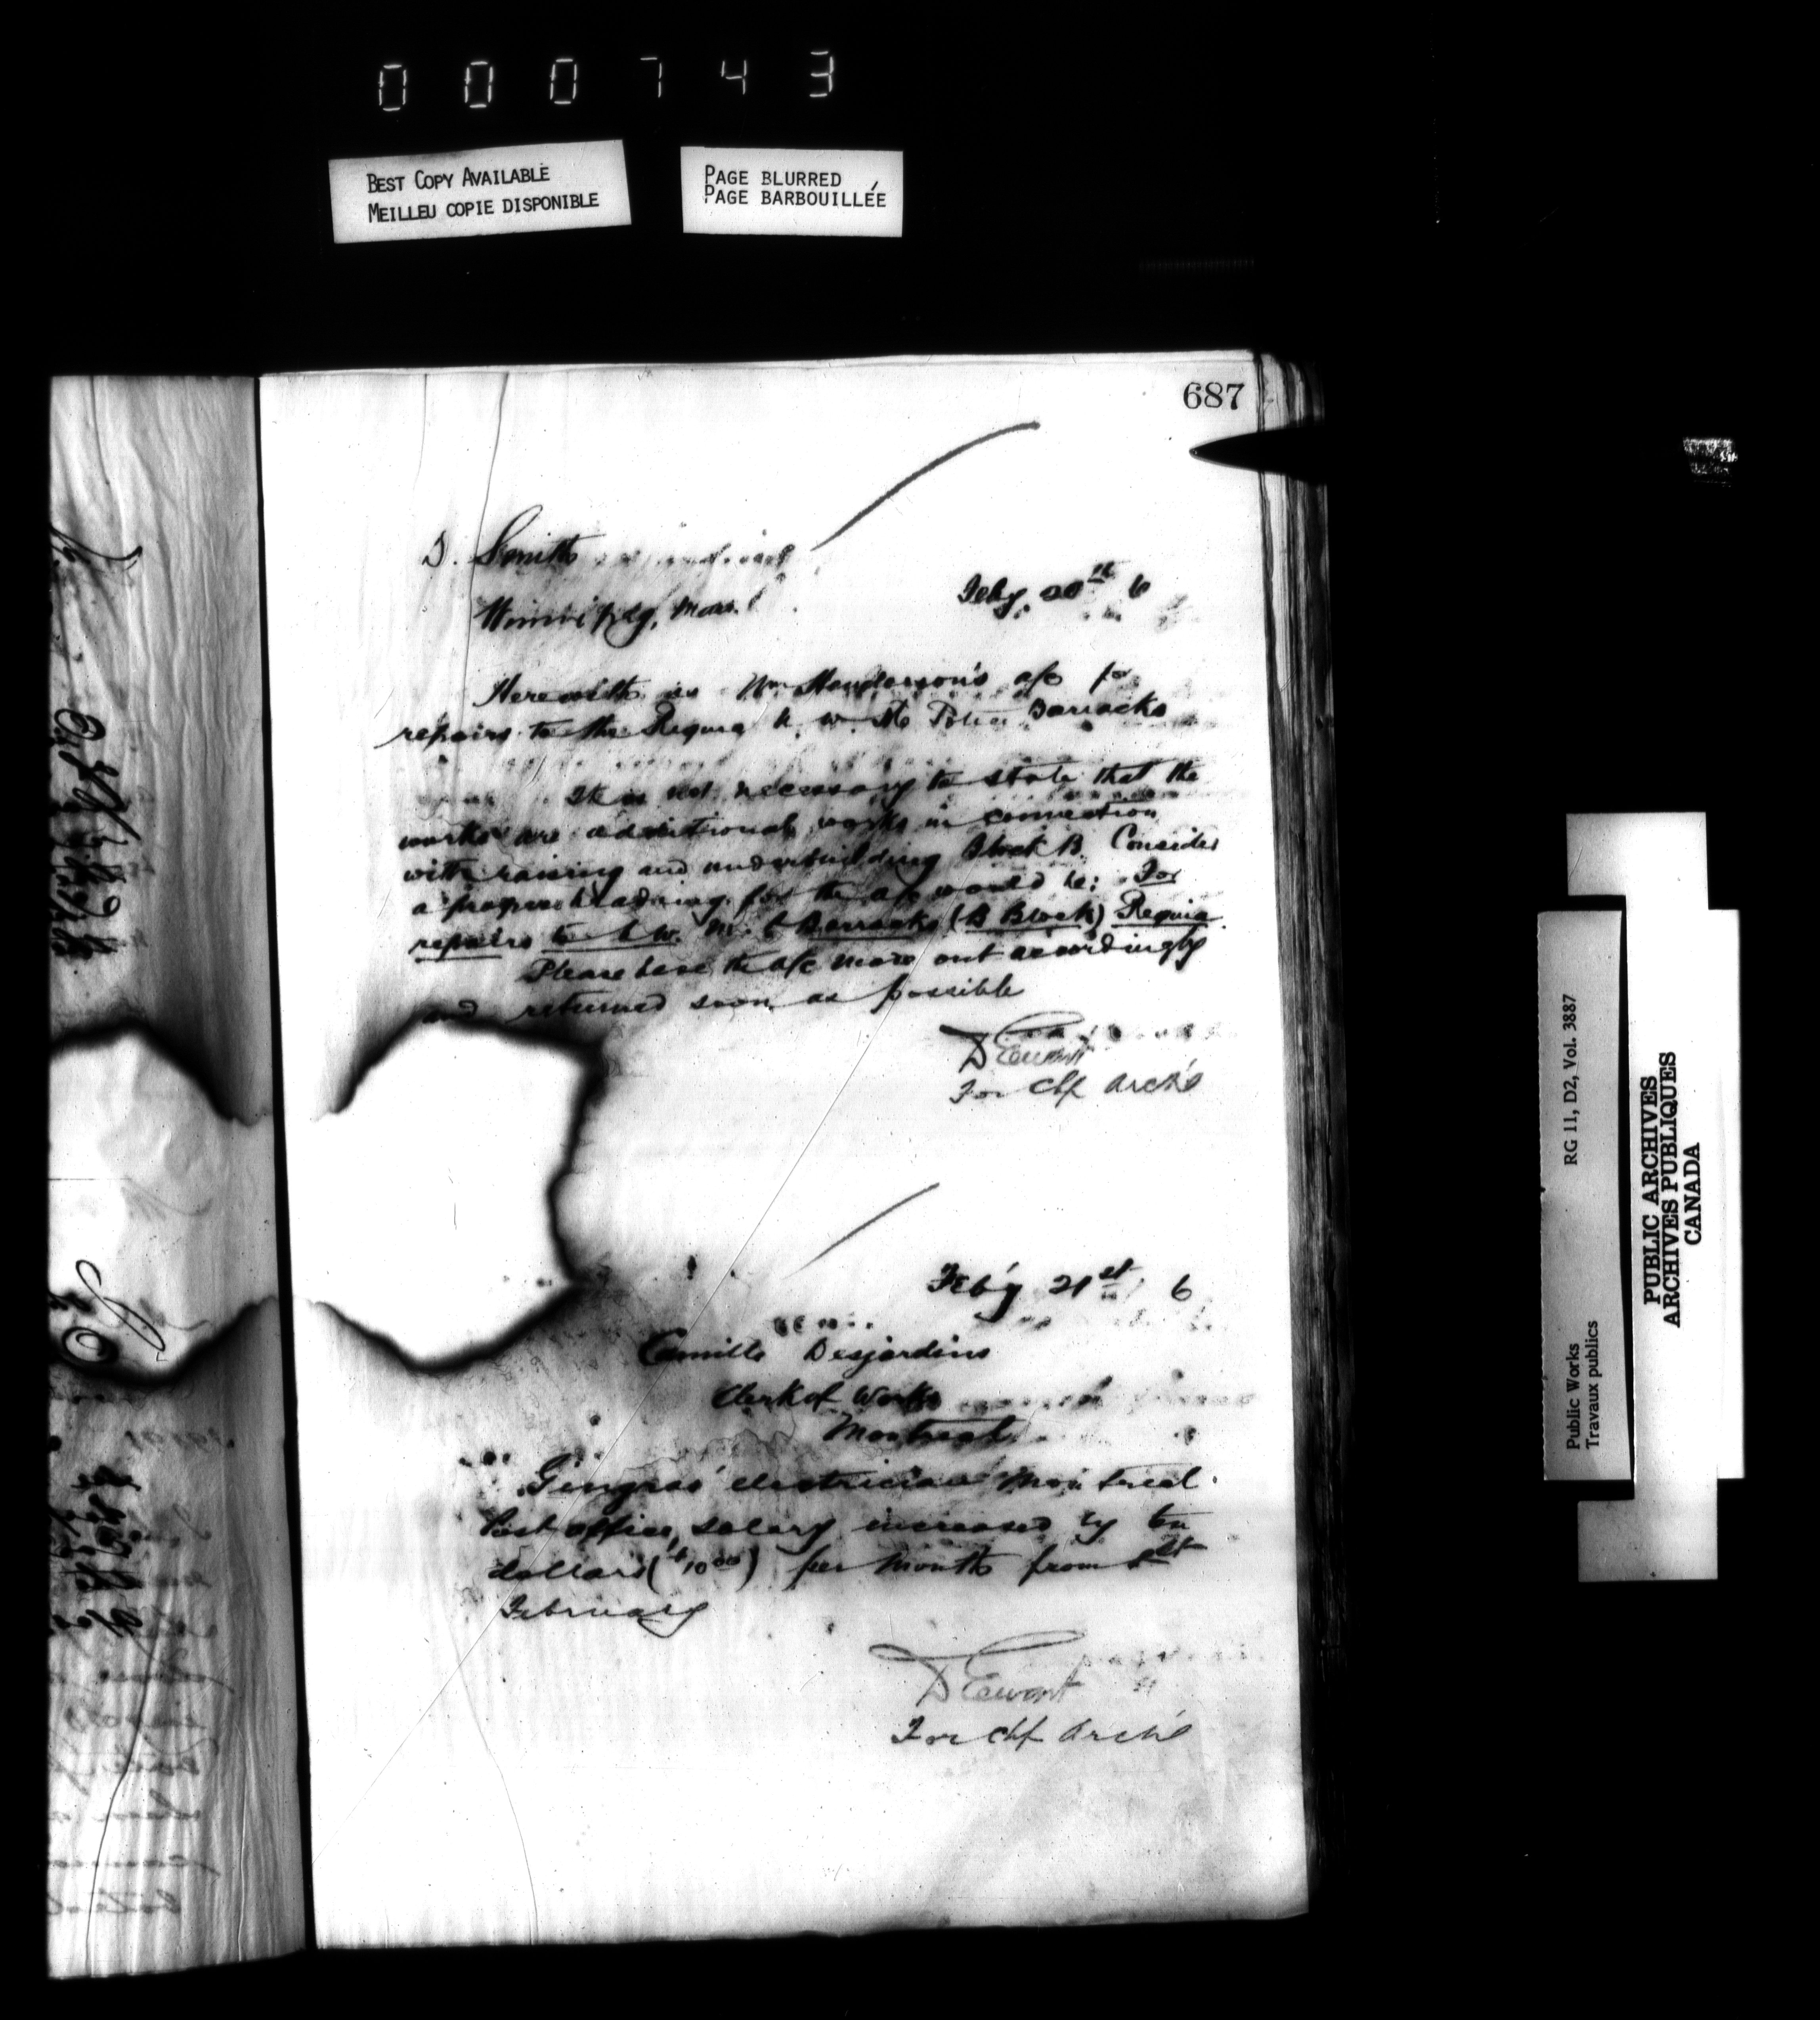 000743
BEST COPY AVAILABLE
MEILLEU COPIE DISPONIBLE
PAGE BLURRED
PAGE BARBOUILLÉE
687
D. Smith
Winnipeg, Man.
Feby. 20th 6
Herewith is Wm Henderson's a/c for
repairs to the Regina N. W. M. Police Barracks
It is not necessary to state that the
works are additional works in connection
with raising and underbuilding Block B. Consider
a proper heading for the a/c would be: For
repairs to N. W. M. P. Barracks (B Block) Regina.
Please have the a/c made out accordingly
and returned soon as possible
D Ewart
For Chf Archt
Feb'y 21st 6
Camille Desjardins
Clerk of Works
Montreal
Gingras electrician Montreal
Post office, salary increased by ten
dollars ($10 00) per month from 1st
February
D Ewart
For Chf Archt
Public Works
Travaux publics
RG 11, D2, Vol. 3887
PUBLIC ARCHIVES
ARCHIVES PUBLIQUES
CANADA